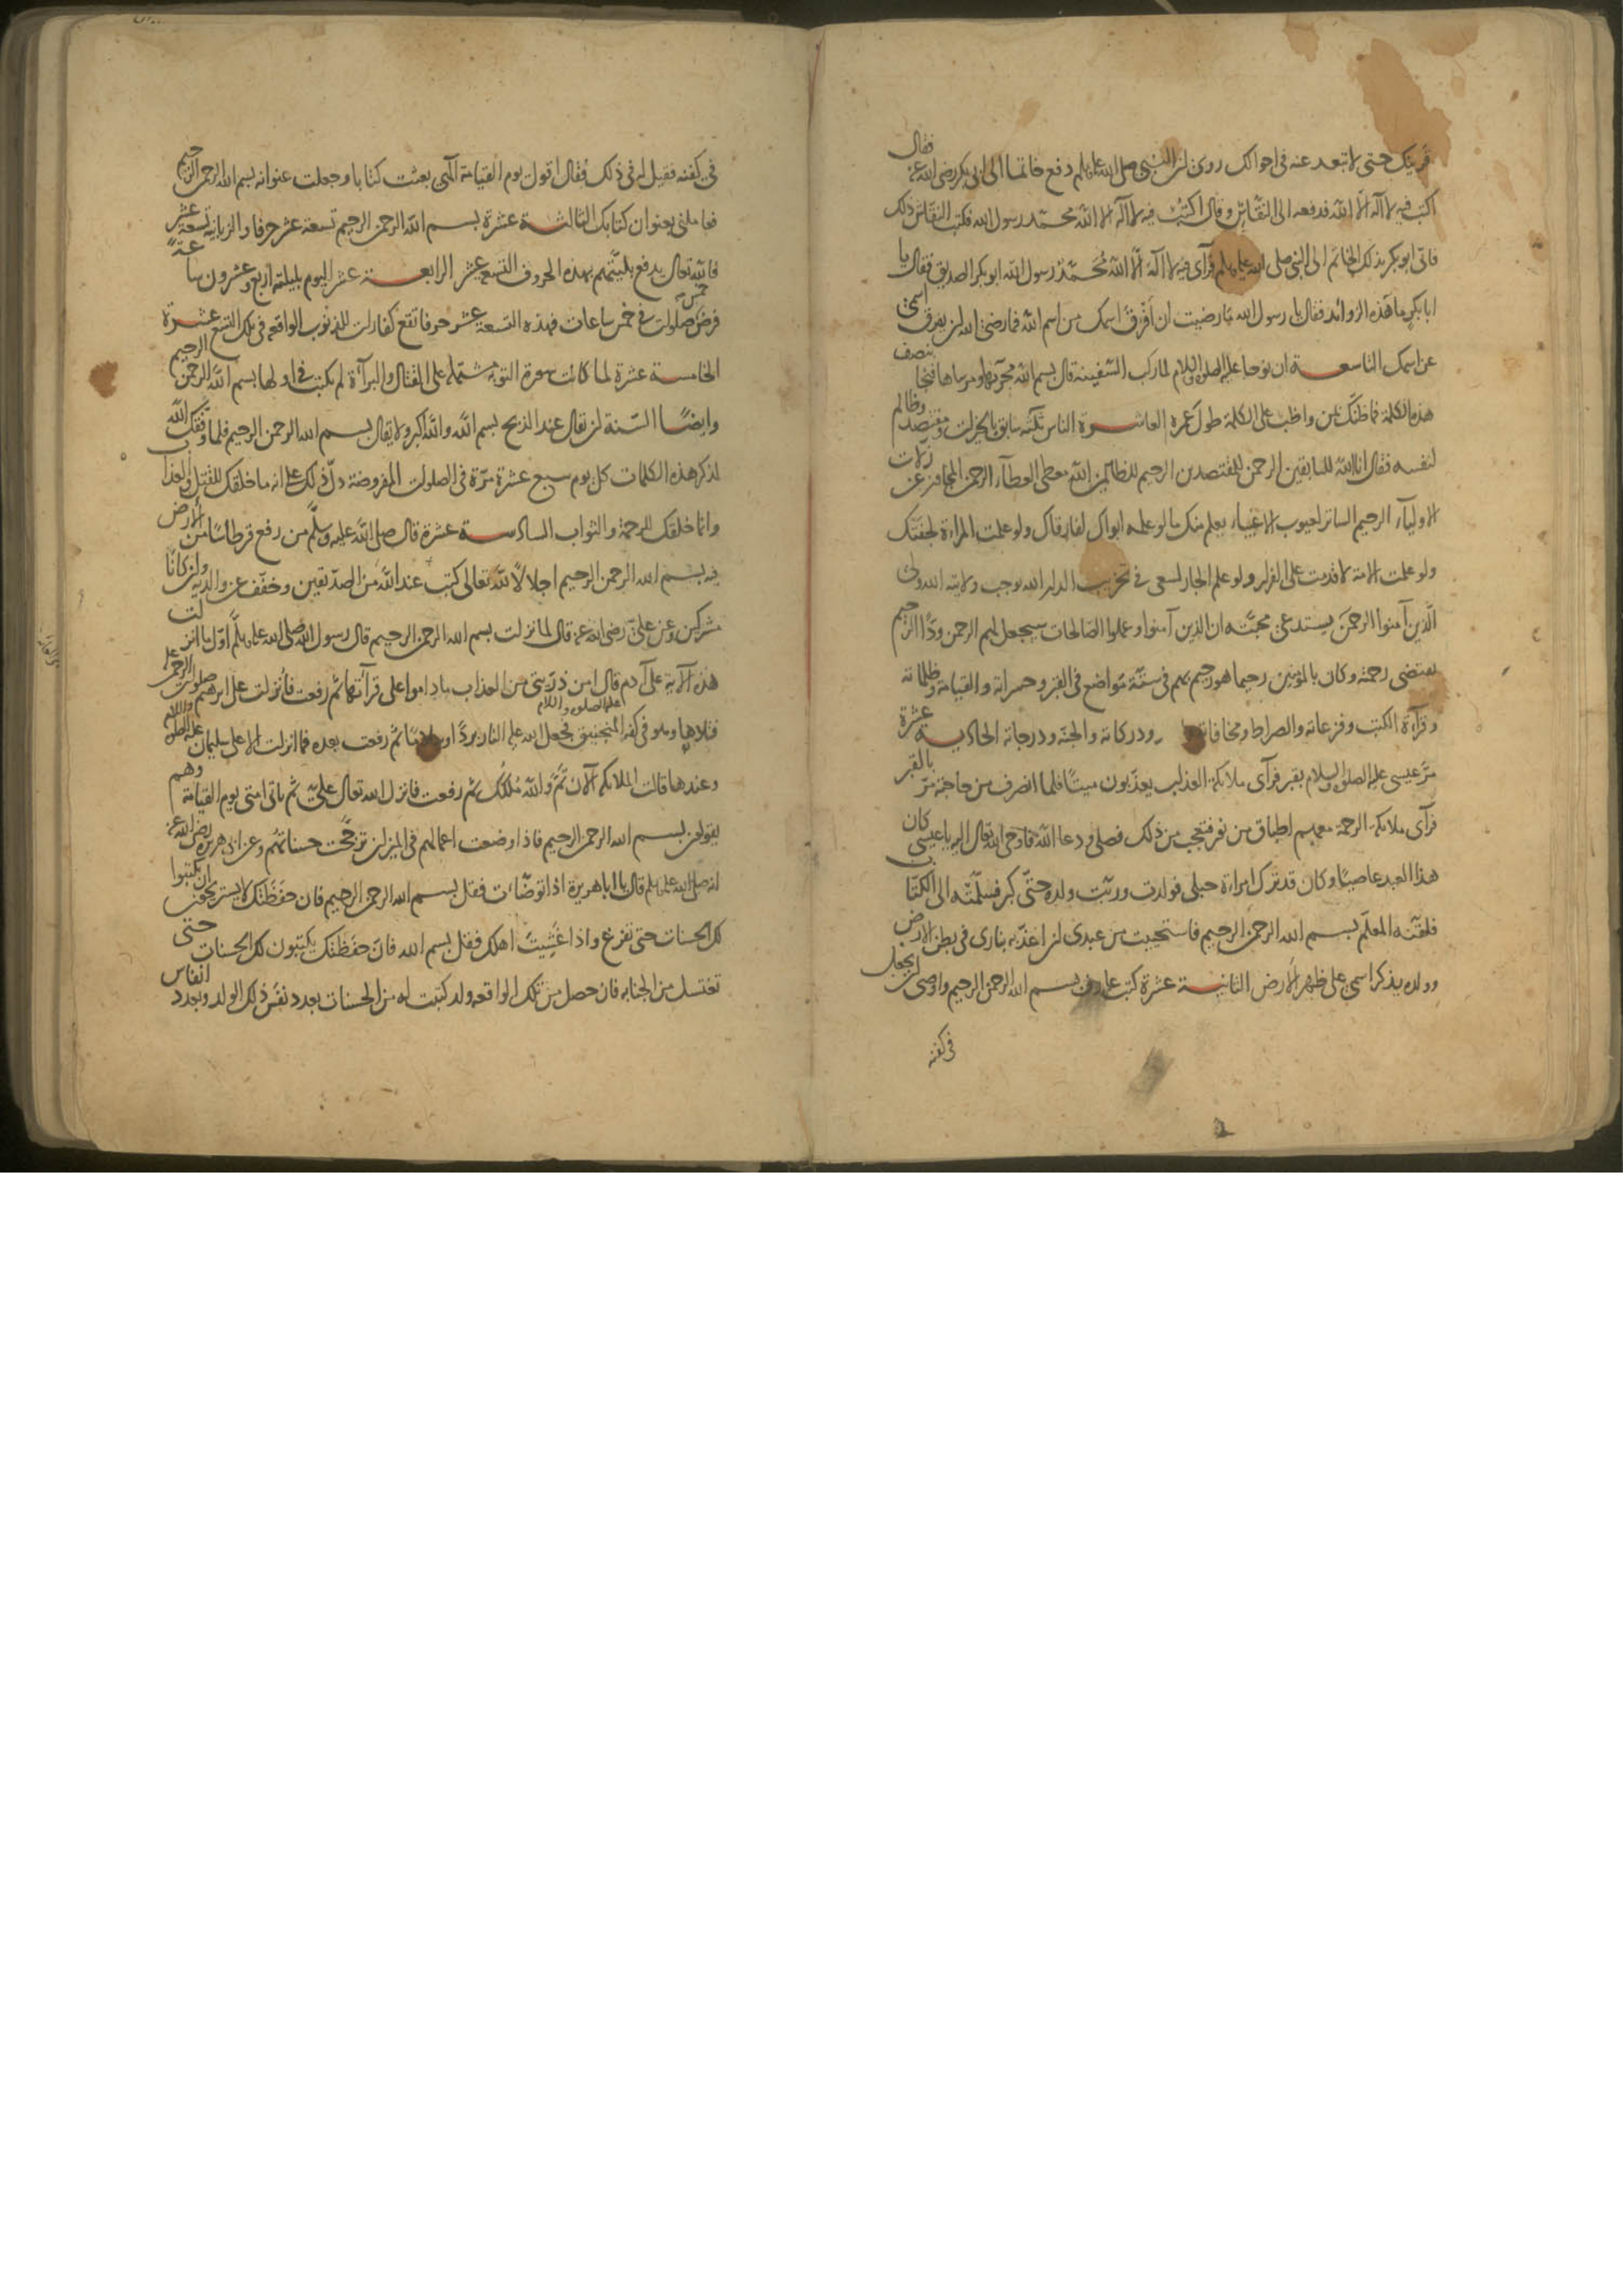 قربتك حتى لا تبعد عنه في احوالك روى ان النبي صلى الله عليه وسلم دفع خاتما الى ابي بكر رضي الله عنه فقال
اكتب فيه لا اله الا الله فدفعه الى النقاش وقال اكتب فيه لا اله الا الله محمد رسول الله فكتب النقاش ذلك
فاتى ابو بكر بذلك الخاتم الى النبي صلى الله عليه وسلم فرآى فيه لا اله الا الله مُحَمّدٌ رسول الله ابو بكر الصديق فقال يا
ابا بكر ما هذه الزوائد فقال يا رسول الله ما رضيت ان اُفرّق اسمك من اسم الله فما رضي الله ان يفرق اسمى
عن اسمك التاسعة ان نوحا عليه الصلوة والسلام لما ركب السفينة قال بسم الله مجريها ومرساها فنجا بنصف
هذه الكلمة فما ظنّك بمن واظب على الكلمة طول عمره العاشرة الناس ثلثة سابق بالخيرات ومقتصد وظالم
لنفسه فقال انا الله للسابقين الرحمن للمقتصدين الرحيم للظالمين الله معطى العطآء الرحمن المتجاوز عن زلات
الاوليآء الرحيم الساتر لعيوب الاغبياء يعلم منك ما لو علمه ابواك لفارقاك ولو علمت المرأة لجفتك
ولو علمت الامة لاقدمت على الفرار ولو علم الجار لسعى في تخريب الدار الله يوجب ولايته الله ولى
الّذين آمنوا الرحمن يستدعى محبّته ان الذين آمنوا وعملوا الصالحات سيجعل لهم الرحمن ودًّا الرحيم
يقتضى رحمته وكان بالمؤمنين رحيما هو رحيم بهم في ستّة مواضع في القبر وحسراته والقيامة وظلماته
وقرآءة الكتب وفزعاته والصراط ومخافاته ودركاته والجنّة ودرجاته الحادية عشرة
مرّ عيسى عليه الصلوة والسلام بقبر فرآى ملائكة العذاب يعذّبون ميتًا فلما انصرف من حاجته مرّ بالقبر
فرآى ملائكة الرحمة معهم اطباق من نور فتعجب من ذلك فصلى ودعا الله فاوحى الله تعالى اليه يا عيسى كان
هذا العبد عاصيًا وكان قد ترك امرأة حبلى فولدت وربّت ولده حتّى كبر فسلّمته الى الكتّاب
فلقّنه المعلّم بسم الله الرحمن الرحيم فاستحييت من عبدى ان اعذّبه بنارى في بطن الارض
وولده يذكر اسمى على ظهر الارض الثانية عشرة كتب عارف بسم الله الرحمن الرحيم واوصى ان يجعل
في كفنه
في كفنه فقيل له في ذلك فقال اقول يوم القيامة الهى بعثت كتابا وجعلت عنوانه بسم الله الرحمن الرحيم
فعاملنى بعنوان كتابك الثالثة عشرة بسم الله الرحمن الرحيم تسعة عشر حرفا والزبانية تسعة عشر
فالله تعالى يدفع بليّتهم بهذه الحروف التسعة عشر الرابعة عشر اليوم بليلته اربع وعشرون ساعةً
فرض خمس صلوات في خمس ساعات فهذه التسعة عشر حرفا تقع كفارات للذنوب الواقعه في تلك التسع عشرة
الخامسة عشرة لما كانت سورة التوبة مشتملة على القتال والبرآءة لم يكتب في اولها بسم الله الرحمن الرحيم
وايضًا السّنة ان يقال عند الذبح بسم الله والله اكبر ولا يقال بسم الله الرحمن الرحيم فلما وفّقك الله
لذكر هذه الكلمات كل يوم سبع عشرة مرّة في الصلوات المفروضة دلّ ذلك على انه ما خلقك للقتل والعذاب
وانما خلقك للرحمة والثواب السادسة عشرة قال صلى الله عليه وسلّم من رفع قرطاسًا من الارض
فيه بسم الله الرحمن الرحيم اجلالًا لله تعالى كتب عند الله من الصدّيقين وخفّف عن والديه وان كانا
مشركين وعن علىّ رضى الله عنه قال لما نزلت بسم الله الرحمن الرحيم قال رسول الله صلى الله عليه وسلّم اوّل ما انزلت
هذه الآية على آدم قال امن ذرّيتى من العذاب ما داموا على قرآءتها ثم رفعت فانزلت على ابرهيم صلوات الرحمن عليه
فتلاها وهو في كفة المنجنيق فجعل الله عليه النار بردًا وسلامًا ثم رفعت بعده فما انزلت الا على سليمان عليه الصلوة والسلام
وعندها قالت الملائكة الآن تمّ والله مُلكُك ثم رفعت فانزل الله تعالى علىّ ثم ياتى امتى يوم القيامة وهم
يقولون بسم الله الرحمن الرحيم فاذا وضعت اعمالهم في الميزان ترجّحت حسناتهم وعن ابى هريرة رضى الله عنه
انه صلى الله عليه وسلم قال يا ابا هريرة اذا توضّأت فقل بسم الله الرحمن الرحيم فان حفَظَتك لا يستريحون ان يكتبوا
لك الحسنات حتى تفرغ واذا غَشِيتَ اهلك فقل بسم الله فانّ حفَظَتك يكتبون لك الحسنات حتى
تغتسل من الجنابه فان حصل من تلك الواقعه ولد كتبت له من الحسنات بعدد نفَس ذلك الولد وبعدد انفاس